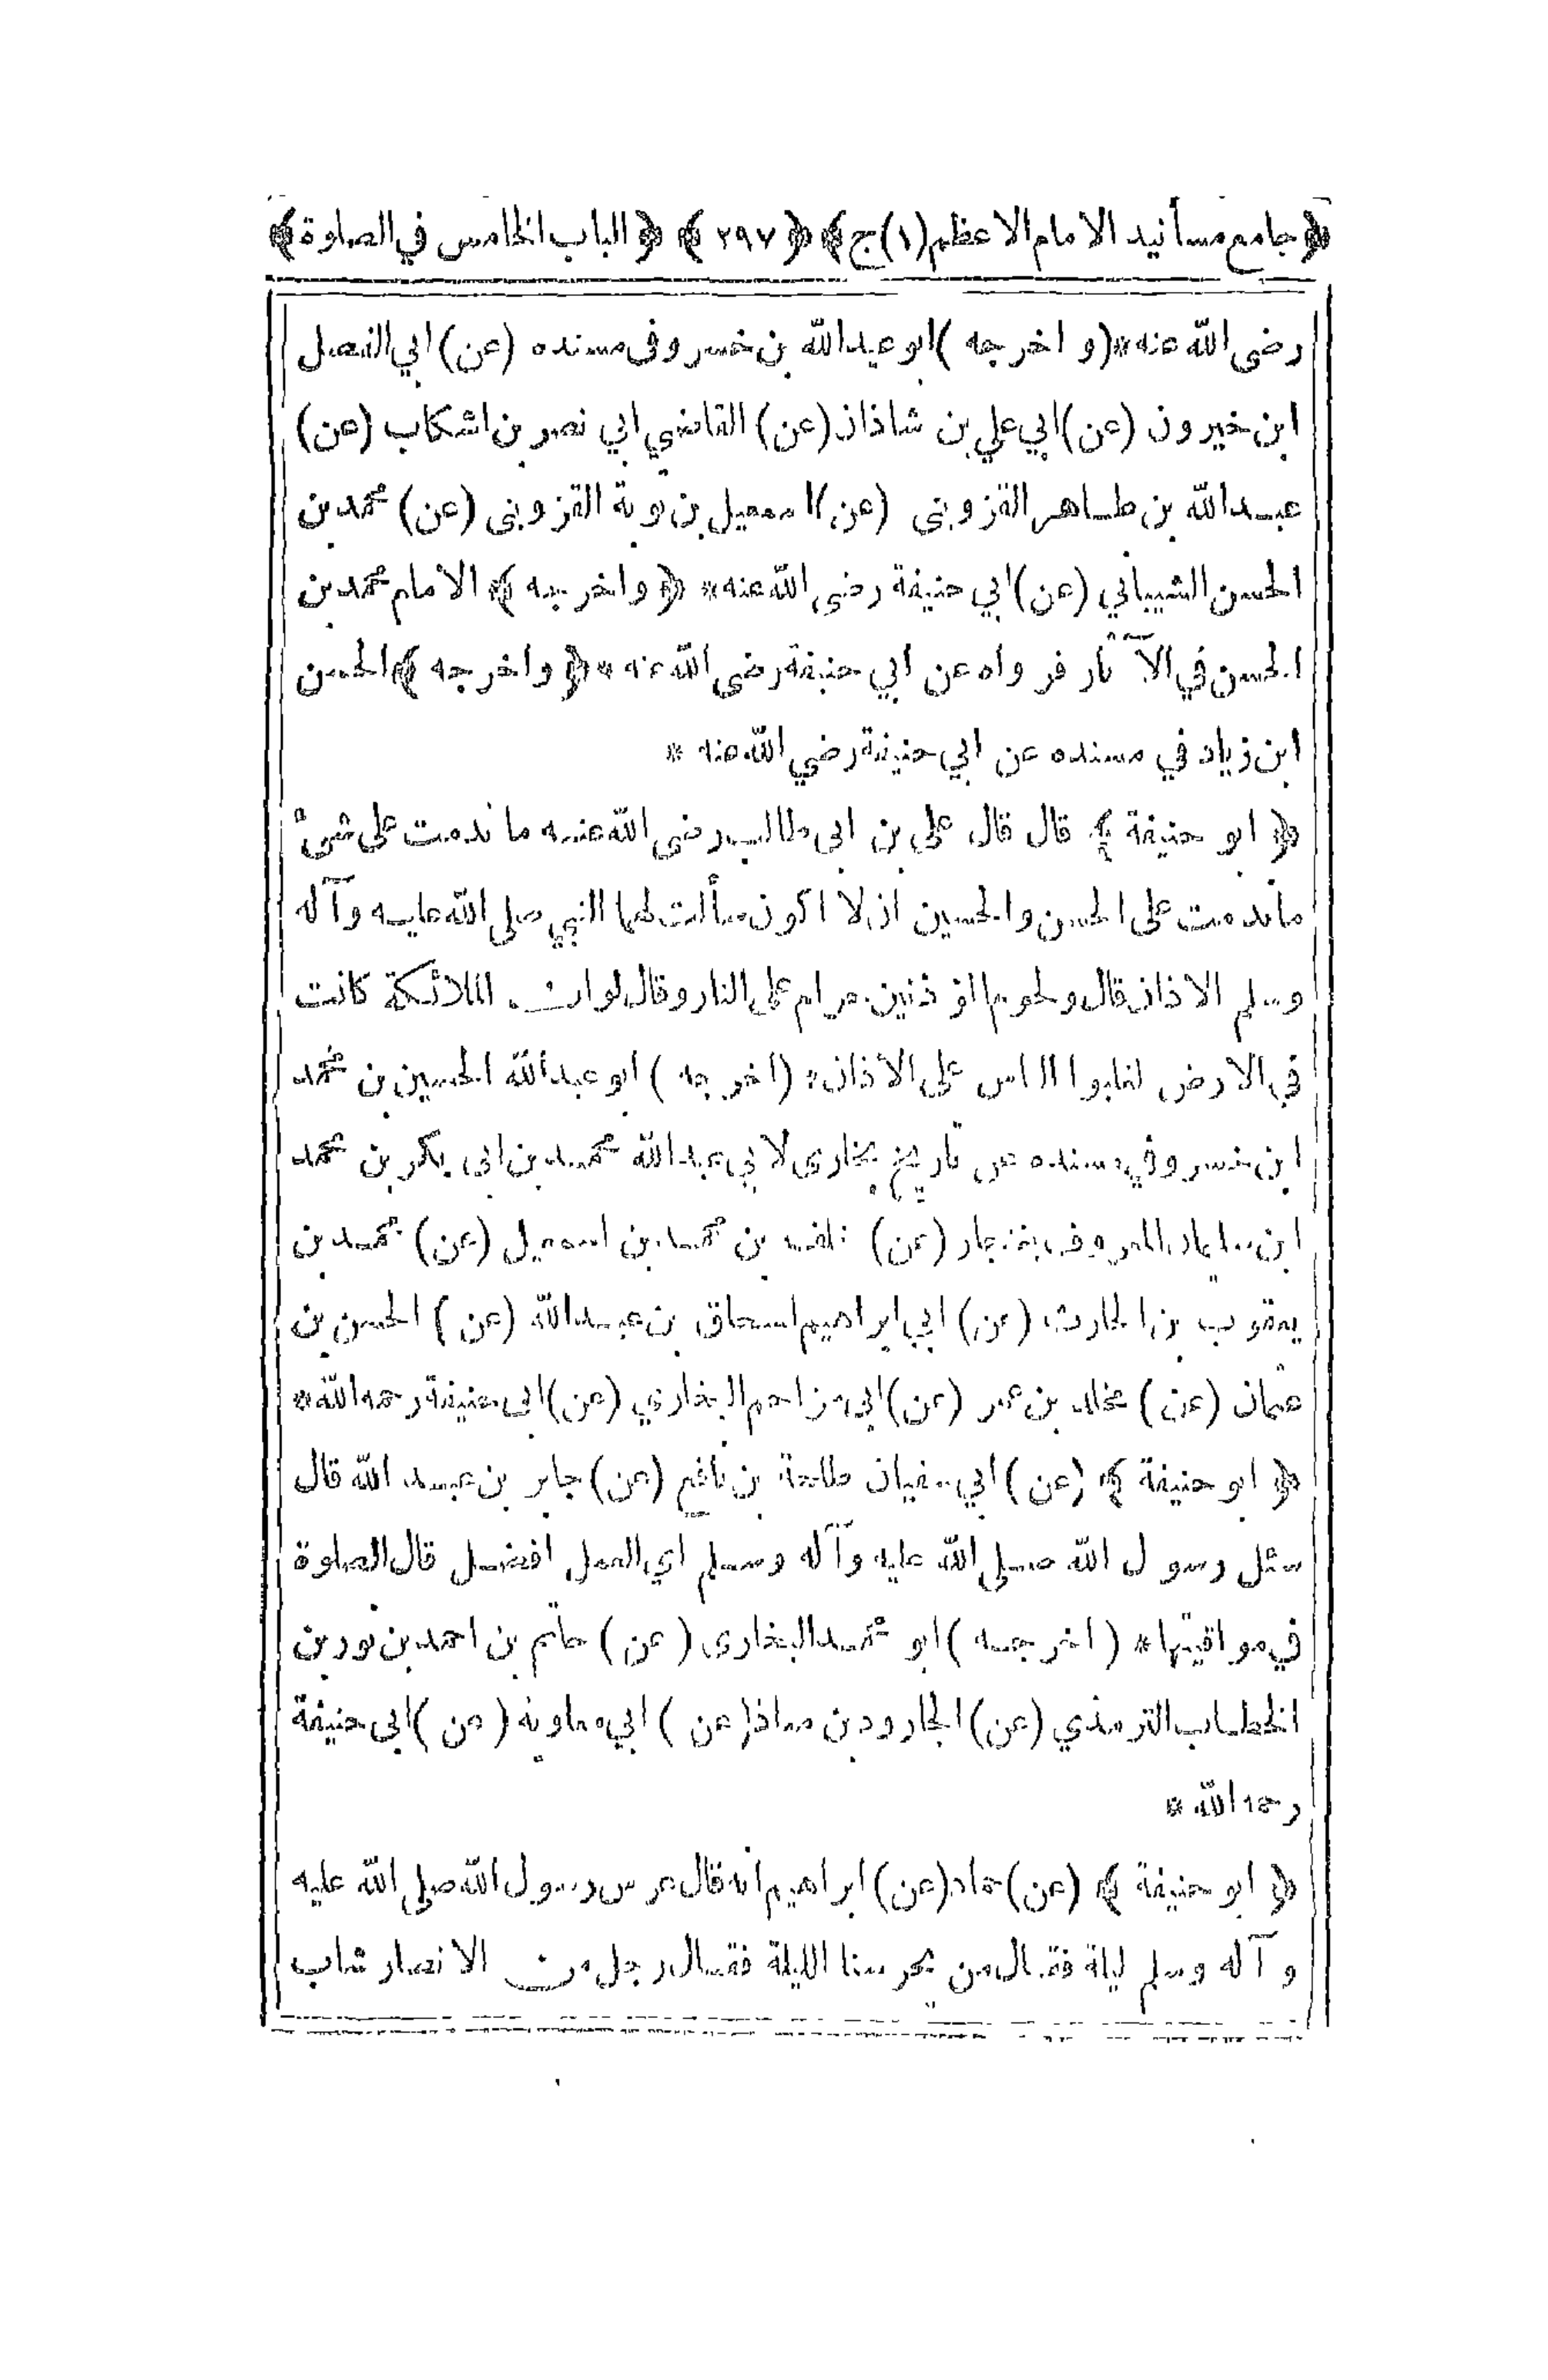 ﴿جامع مسانيد الامام الاعظم (١) ج﴾ ﴿٢٩٧﴾ ﴿الباب الخامس في الصلوة﴾
رضى الله عنه * (و اخرجه) ابو عبدالله بن خسر وفى مسنده (عن) ابي الفضل
ابن خيرون (عن) ابي علي بن شاذان (عن) القاضي ابي نصر بن اشكاب (عن)
عبدالله بن طاهر القزوينى (عن) اسمعيل بن توبة القزوينى (عن) محمد بن
الحسن الشيباني (عن) ابي حنيفة رضى الله عنه * ﴿واخرجه﴾ الامام محمد بن
الحسن في الآثار فرواه عن ابي حنيفة رضى الله عنه * ﴿واخرجه﴾ الحسن
ابن زياد في مسنده عن ابي حنيفة رضي الله عنه *
﴿ابو حنيفة﴾ قال قال على بن ابى طالب رضى الله عنه ما ندمت على شئ
ماندمت على الحسن والحسين ان لا اكون سألت لهما النبي صلى الله عليه وآله
وسلم الاذان قال ولحوم المؤذنين حرام على النار وقال لوان الملائكة كانت
في الارض لغلبوا الناس على الاذان * (اخرجه) ابو عبدالله الحسين بن محمد
ابن خسر وفي مسنده عن تاريخ بخارى لابي عبدالله محمد بن ابى بكر بن محمد
ابن سليمان المعروف بغنجار (عن) خلف بن محمد بن اسمعيل (عن) محمد بن
يعقوب بن الحارث (عن) ابي ابراهيم اسحاق بن عبدالله (عن) الحسن بن
عثمان (عن) مخلد بن عمر (عن) ابى مزاحم البخاري (عن) ابى حنيفة رحمه الله *
﴿ابو حنيفة﴾ (عن) ابي سفيان طلحة بن نافع (عن) جابر بن عبد الله قال
سئل رسول الله صلى الله عليه وآله وسلم اي العمل افضل قال الصلوة
في مواقيتها * (اخرجه) ابو محمد البخارى (عن) حاتم بن احمد بن نور بن
الخطاب الترمذي (عن) الجارود بن معاذ (عن) ابي معاوية (عن) ابى حنيفة
رحمه الله *
﴿ابو حنيفة﴾ (عن) حماد (عن) ابراهيم انه قال عرس رسول الله صلى الله عليه
وآله وسلم ليلة فقال من يحرسنا الليلة فقال رجل من الانصار شاب